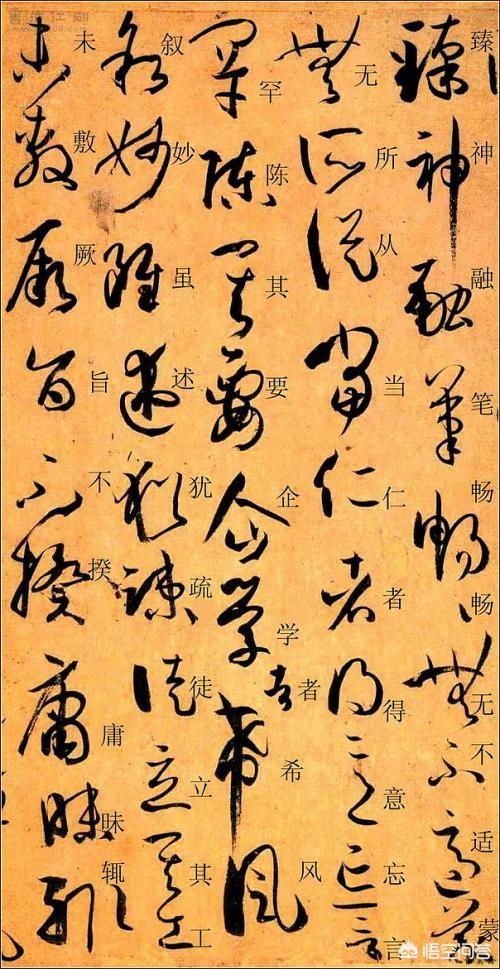 臻神融笔畅畅无不适蒙
无所从当仁者得意忘言
罕陈其要企学者希风
叙妙虽述犹疏徒立其工
未敷厥旨不揆庸昧辄
悟空问答